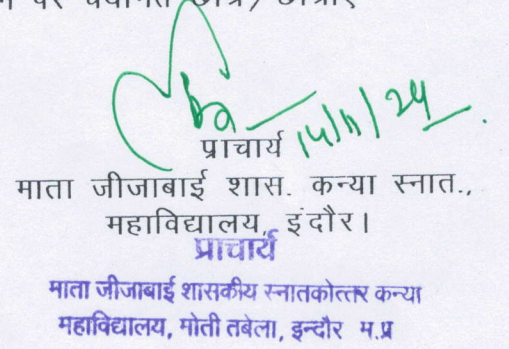 पर चयनित छात्र/छात्राएं
14/11/24
प्राचार्य
माता जीजाबाई शास. कन्या स्नात.,
महाविद्यालय, इंदौर।
प्राचार्य
माता जीजाबाई शासकीय स्नातकोत्तर कन्या
महाविद्यालय, मोती तबेला, इन्दौर म.प्र